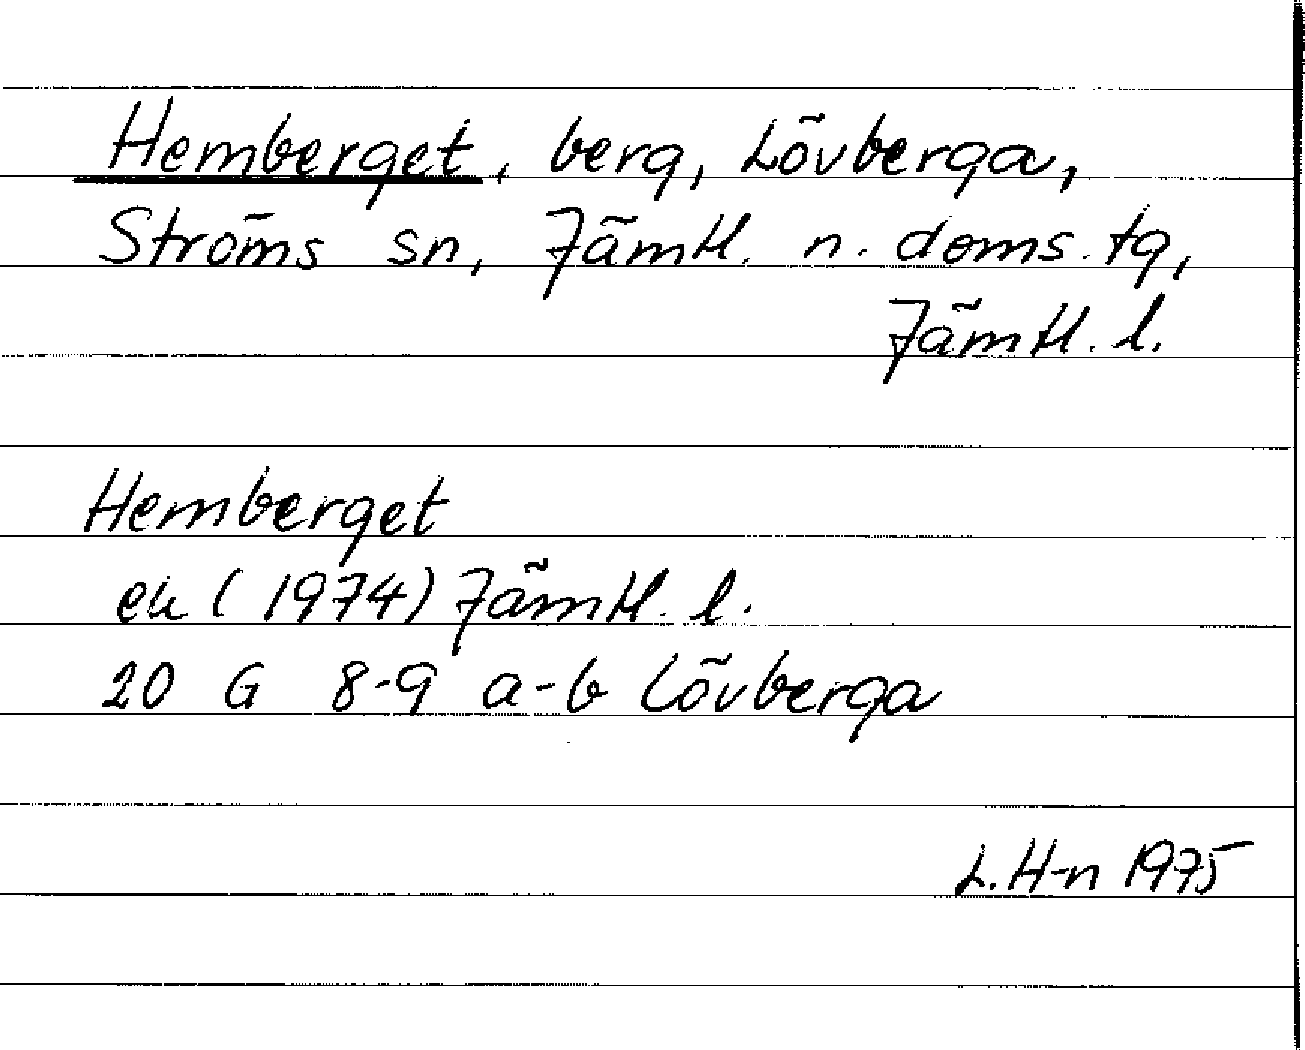 Hemberget, berg, Lövberga,
Ströms sn, Jämtl. n. doms. tg,
Jämtl. l.
Hemberget
ek (1974) Jämtl. l.
20 G 8-9 a-b Lövberga
L. H-n 1975